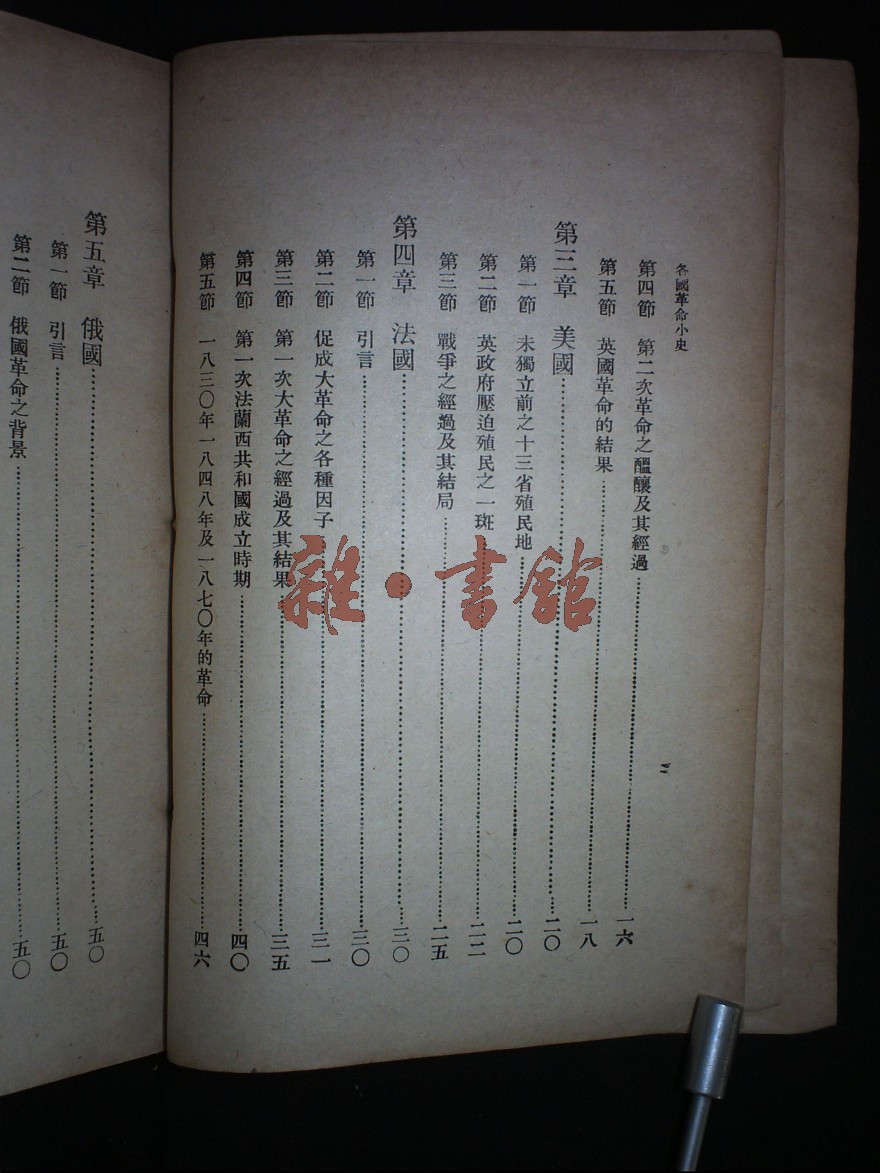 各國革命小史
第四節 第二次革命之醞釀及其經過…………一六
第五節 英國革命的結果…………一八
第三章 美國…………二〇
第一節 未獨立前之十三省殖民地…………二〇
第二節 英政府壓迫殖民之一斑…………二二
第三節 戰爭之經過及其結局…………二五
第四章 法國…………三〇
第一節 引言…………三〇
第二節 促成大革命之各種因子…………三一
第三節 第一次大革命之經過及其結果…………三五
第四節 第一次法蘭西共和國成立時期…………四〇
第五節 一八三〇年一八四八年及一八七〇年的革命…………四六
第五章 俄國…………五〇
第一節 引言…………五〇
第二節 俄國革命之背景…………五〇
雜·書館